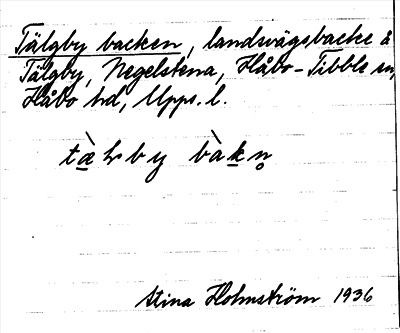 Tälgby backen, landsvägsbacke å
Tälgby, Negelstena, Håbo-Tibble sn,
Håbo hd, Upps. l.
Stina Holmström 1936